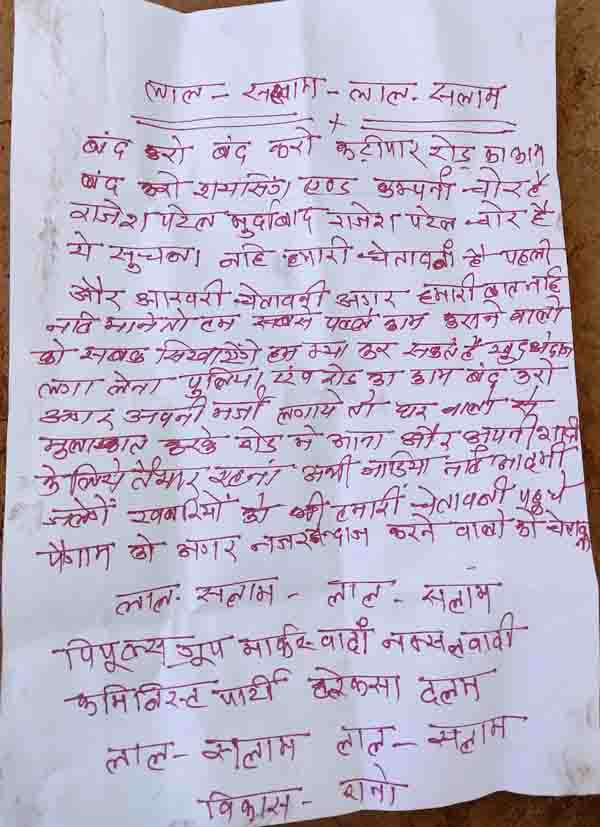 लाल - सलाम - लाल - सलाम
बंद करो बंद करो कटीपार रोड का काम
बंद करो एण्ड कम्पनी चोर है
राजेश पटेल मुर्दाबाद राजेश पटेल चोर है
ये सुचना नहि हमारी चेतावनी है पहली
और आखरी चेतावनी अगर हमारी बात नहि
नहि माने तो हम सबसे पहले काम कराने वालो
को सबक सिखाएंगे हम क्या कर सकते है खुद अंदाजा
लगा लेना पुलिया, एंव रोड का काम बंद करो
अगर अपनी मर्जी लगाये तो घर वालो से
मुलाकात करके रोड मे आना और अपनी
के लिये तैयार रहना अभी गाडिया नहि आदमी
जलेगें खबरियों को भी हमारी चेतावनी पहुचे
पैगाम को अगर नजरअंदाज करने वालो को
लाल - सलाम - लाल - सलाम
पिपुल्स ग्रुप मार्कस वादी नक्सलवादी
कमिनिस्ट पार्टी दरेकसा दलम
लाल - सलाम लाल - सलाम
विकास -